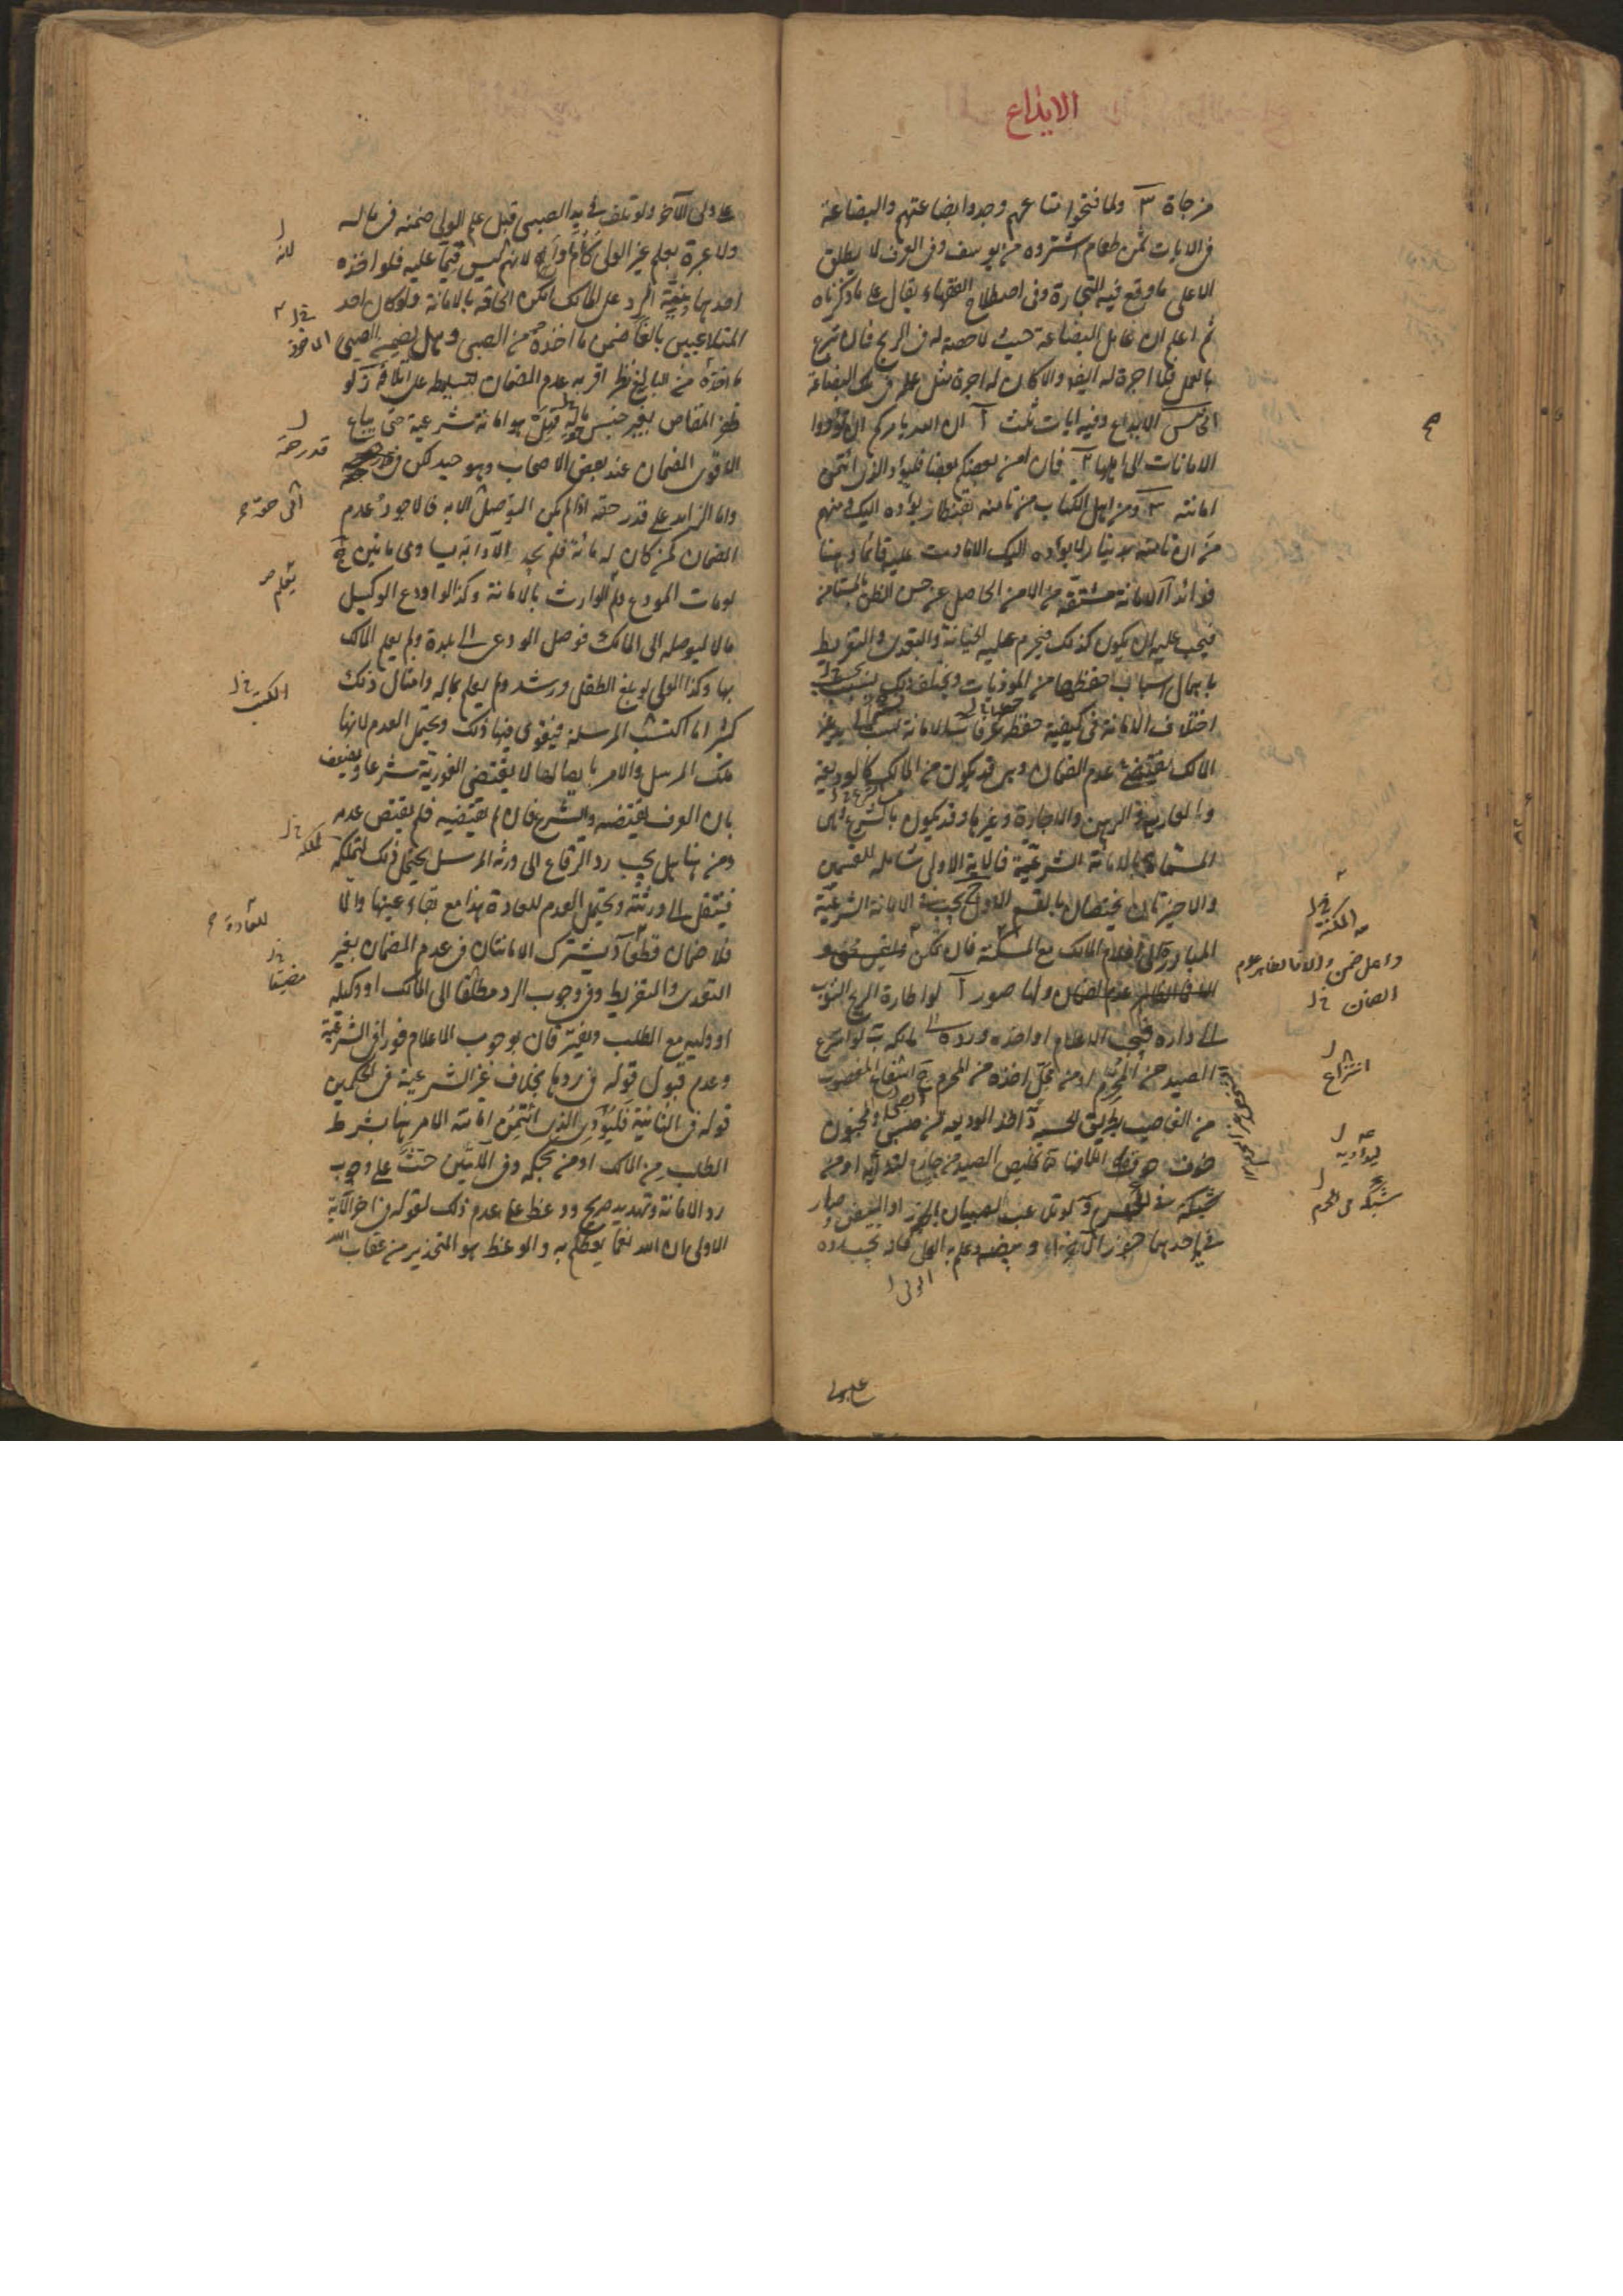 الايداع
مزجاة ٣ ولما فتحوا متاعهم وجدوا بضاعتهم والبضاعة
فى الايات ثمن طعام اشتروه من يوسف وفى العرف لا يطلق
الا على ما وقع فيه التجارة وفى اصطلاح الفقهاء يقال على ما ذكرناه
ثم اعلم ان عامل البضاعة حيث لا حصة له فى الربح فان تبرع
بالعمل فلا اجرة له ايضا والا كان له اجرة مثل عمله فى تلك البضاعة
الخامس الايداع وفيه ايات ثلث آ ان الله يامركم ان تؤدوا
الامانات الى اهلها ٢ فان امن بعضكم بعضا فليؤد الذى ائتمن
امانته ٣ ومن اهل الكتاب من تامنه بقنطار يؤده اليك ومنهم
من ان تامنه بدينار لا يؤده اليك الا ما دمت عليه قائما وهنا
فوائد آ الامانة مشتقه من الامن الحاصل عن حسن الظن بالمستامن
فيجب عليه ان يكون كذلك فيحرم عليه الخيانة والتعدى والتفريط
باهمال اسباب حفظها من الموذيات ويختلف ذلك بحسب
اختلاف الامانة فى كيفية حفظه عرفا ب الامانة يد غير
المالك يقتضى عدم الضمان وهى قد يكون من المالك كالوديعة
والعارية والرهن والاجارة وغيرها وقد يكون بالشرع وهى
المسماة بالامانة الشرعية فالاية الاولى شاملة للقسمين
والاخيرتان يختصان بالقسم الاول ج يجب فى الامانة الشرعية
المبادرة الى اعلام المالك مع المكنة فان تمكن
الا فالظاهر عدم الضمان ولها صور آ لو اطارة الريح الثوب
الى داره فيجب الاعلام او اخذه ورده الى مالكه ب لو انتزع
الصيد من المحرم او من محل اخذه من المحرم ج انتزاع المغصوب
من الغاصب بطريق الحسبة د اخذ الوديعة من صبى او مجنون
خوف اتلافها ه تخليص الصيد من جارح ليداويه او من
شبكة فى الحرم و لو تلاعب الصبيان بالجوز او البيض وصار
فى يد احدهما جوز الاخر او بيضه وعلم به الولى فانه يجب رده
الولى
على ولى
ح
المكنة خ ل
واهمل ضمن والا فالظاهر عدم
الضمان خ ل
انتزاع
ليداويه
شبكة فى الحرم
على ولى الآخر ولو تلف فى يد الصبى قبل علم الولى ضمنه فى ماله
ولا عبرة بعلم غير الولى كأم او اخ لانهم ليس قيما عليه فلو اخذه
احدهما بنية الرد على المالك امكن الحاقه بالامانة ولو كان احد
المتلاعبين بالغا ضمن ما اخذه من الصبى وهل يضمن الصبى
ما اخذه من البالغ نظر اقربه عدم الضمان لتسليطه على اتلافه ز لو
ظفر المقاص بغير جنس ماله قيل هو امانة شرعية حتى يباع
الاقوى الضمان عند بعض الاصحاب وهو جيد لكن فى
واما الزايد على قدر حقه اذا لم يمكن التوصل الا به فالاجود عدم
الضمان كمن كان له مائة فلم يجد الا دابة يساوى مائتين ح
لو مات المودع ولم الوارث بالامانة وكذا لو اودع الوكيل
مالا ليوصله الى المالك فوصل المودعى الى بلده ولم يعلم المالك
بها وكذا الولى لو بلغ الطفل ورشد ولم يعلم بماله وامثال ذلك
كثير اما الكتب المرسلة فيقوى فيها ذلك ويحتمل العدم لانها
ملك المرسل والامر بايصالها لا يقتضى الفورية شرعا ويضعف
بان العرف يقتضيه والشرع فان لم يقتضيه فلم يقتض عدمه
ومن هنا هل يجب رد الرقاع الى ورثة المرسل يحتمل ذلك لتملكه
فينتقل الى ورثته ويحتمل العدم للعادة هذا مع بقاء عينها والا
فلا ضمان قطعا د يشترك الامانتان فى عدم الضمان بغير
التعدى والتفريط وفى وجوب الرد مطلقا الى المالك او وكيله
او وليه مع الطلب ويفترقان بوجوب الاعلام فورا فى الشرعية
وعدم قبول قوله فى ردها بخلاف غير الشرعية فى الحكمين
قوله فى الثانية فليؤد الذى ائتمن امانته الامر هنا بشرط
الطلب من المالك او من بحكمه وفى الآيتين حث على وجوب
رد الامانة وتهديد صريح ووعظ على عدم ذلك لقوله فى اخر الآية
الاولى ان الله نعما يعظكم به والوعظ هو التحذير من عقاب الله
لانه
الماخوذ
قدر حقه
يعلم
الكتب خ ل
لملكه خ ل
للعادة